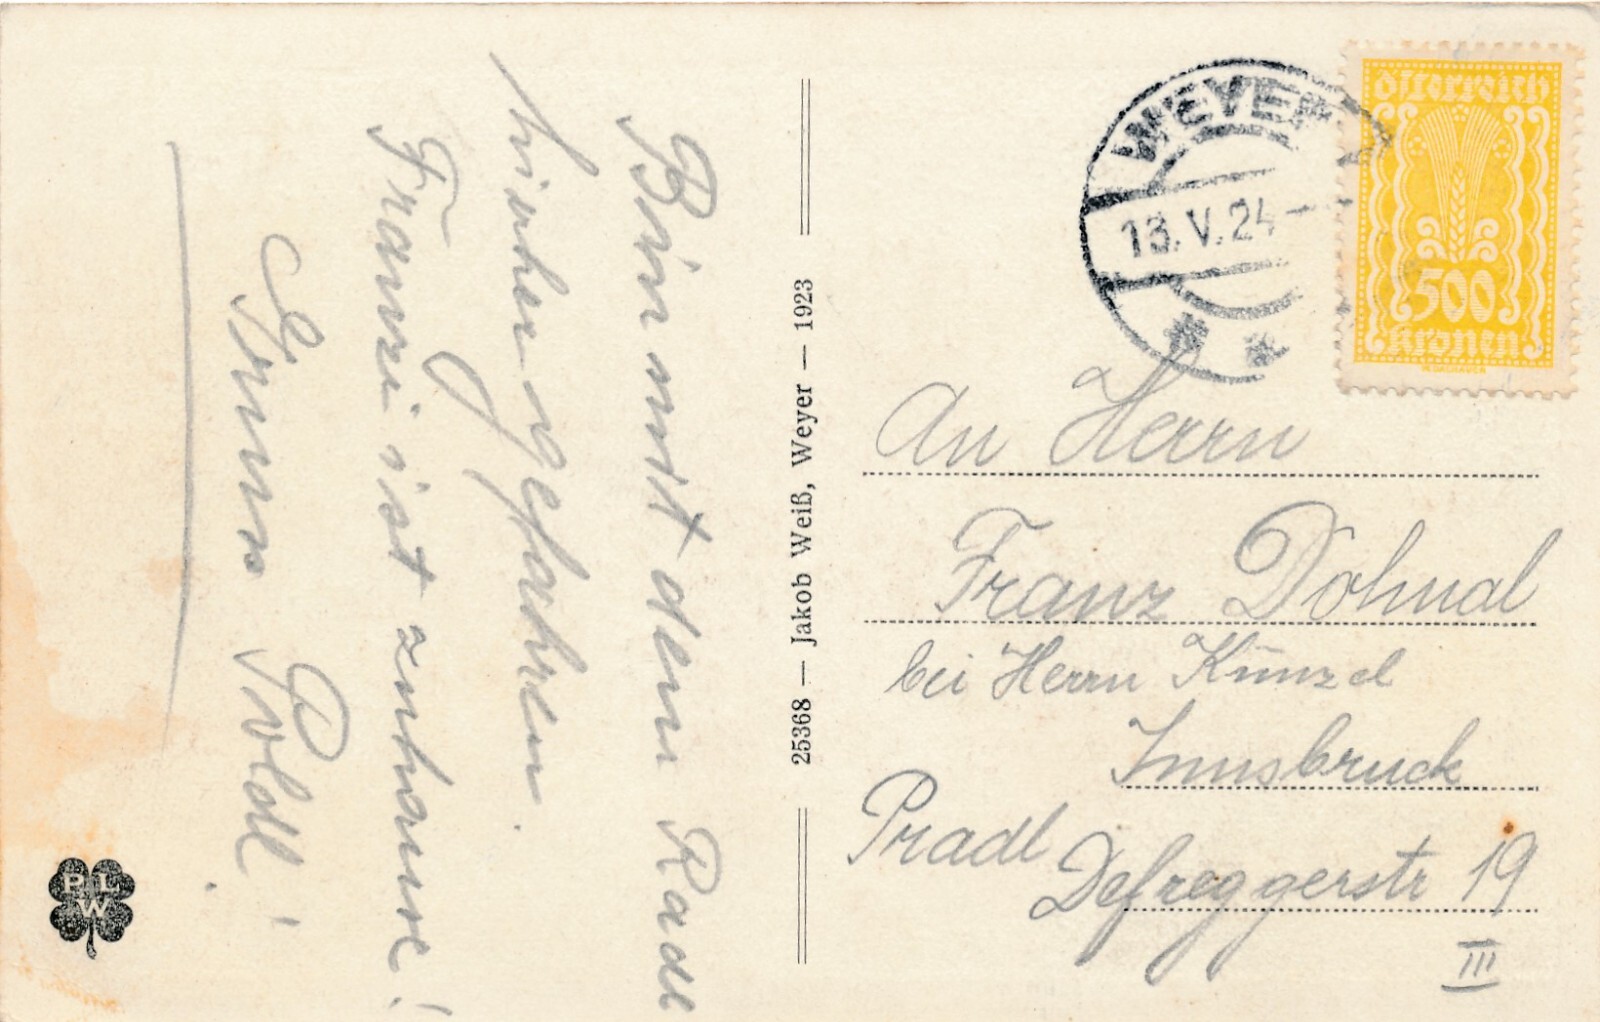 Bin mit dem Rade
hierher gefahren.
Franzi ist zuhause!
Gruss Poldl!
25368 — Jakob Weiß, Weyer — 1923
PLW
WEYER
13.V.24
Österreich
500
Kronen
An Herrn
Franz Dohnal
bei Herrn Künzel
Innsbruck
Pradl
Defreggerstr 19
III